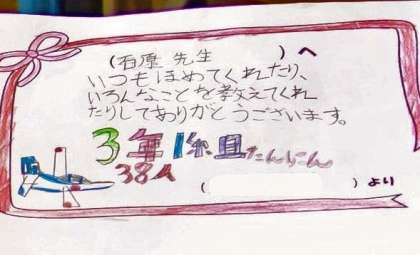 (石原 先生 )へ
いつもほめてくれたり、
いろんなことを教えてくれ
たりしてありがとうございます。
3年1組
38人
( )より